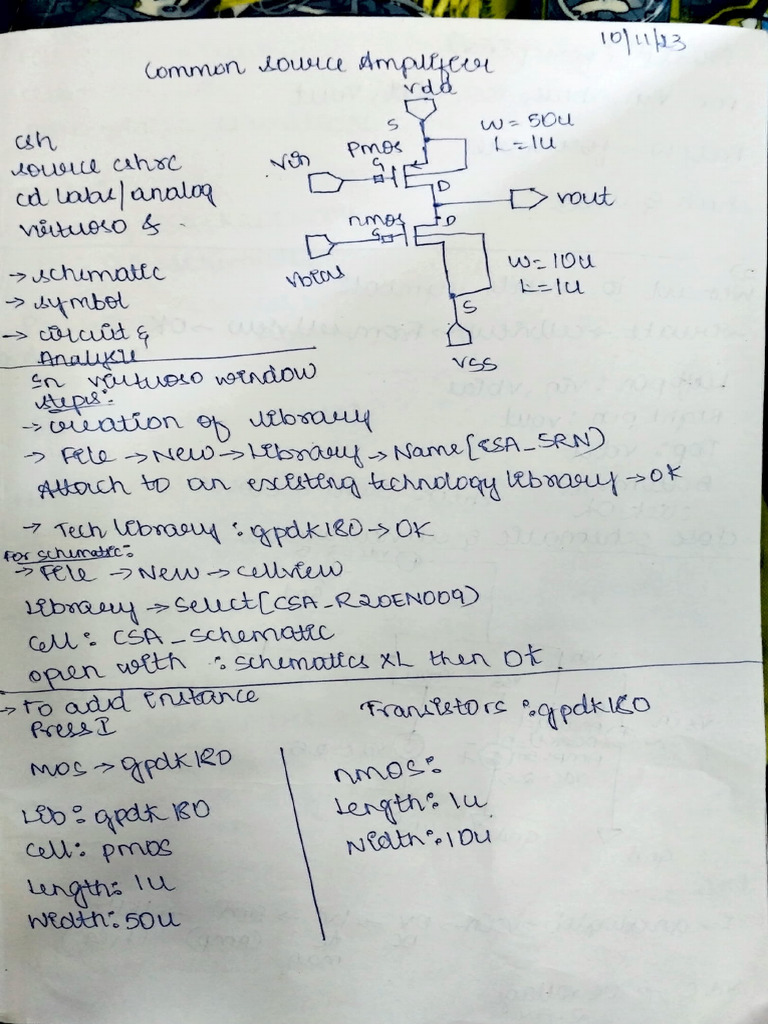 10/11/23
Common source Amplifier
vdd
S
W = 50u
L = 1u
pmos
Vin
G
D
vout
nmos
G
D
Vbias
W = 10u
L = 1u
S
VSS
csh
source cshrc
cd labs/analog
virtuoso &
→ schematic
→ symbol
→ circuit &
Analysis
In virtuoso window
steps:
→ creation of library
→ File → New → Library → Name (CSA_SRN)
Attach to an existing technology library → OK
→ Tech library : gpdk180 → OK
For schematic:
→ File → New → cellview
Library → Select (CSA_R20EN009)
Cell : CSA_Schematic
open with : schematics XL then OK
→ To add instance
Press I
Transistors : gpdk180
mos → gpdk180
Lib : gpdk180
Cell : pmos
Length : 1u
Width : 50u
nmos :
Length : 1u
Width : 10u